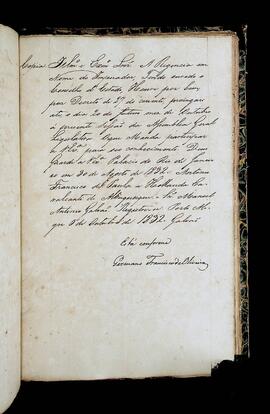 Copia Illmo. e Exmo. Snr. A Regencia em
Nome do Imperador, Tendo ouvido o
Conselho d'Estado, Houve por bem,
por Decreto de 29 do corrente, prorogar
até o dia 20 do futuro mez de Outubro
a presente Sessão da Assembléa Geral
Legislativa. O que Manda participar
a V. Exa. para seu conhecimento. Deos
Guarde a V. Exa. Palacio do Rio de Janei-
ro em 30 de Agosto de 1832. Antonio
Francisco de Paula e Hollanda Ca-
valcanti de Albuquerque. Snr. Manoel
Antonio Galvão. Registe-se. Porto Ale-
gre 5 de Outubro de 1832. Galvão
Está conforme
Germano Francisco de Oliveira